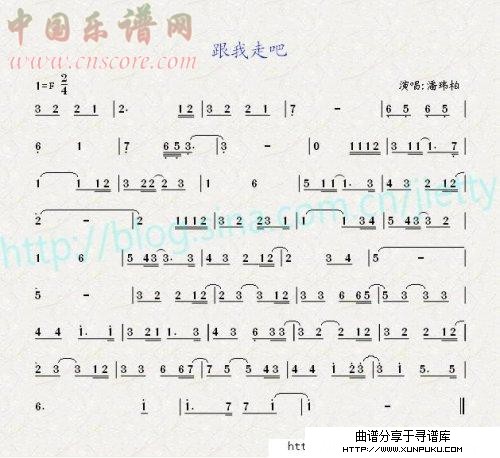 中国乐谱网
www.cnscore.com
跟我走吧
1=F 2/4
演唱:潘玮柏
3 2 2 1 | 2. 12 | 3 2 2 1 | 7 - | 6 5 6 5 |
6 1 | 7 653. | 3 - | 0 1112 | 3 11 1. 7 |
1 1 12 | 3 22 2 3 | 1 6 | 5 11 1. 3 | 4 3 2 12 |
2 - | 2 1112 | 3 2 23 1 | 1 1 34 | 5 43 3 2 |
1 6 | 5 43 3. 3 | 4 3 2 12 | 2 3 4 | 5 - |
5 - | 3 2 2 12 | 2 3 3 12 | 3 3 6 65 | 5 3 3 2 |
4 4 i. i | 3 21 1. 3 | 4 3 6 33 | 3 2 2 12 | 3 2 2 12 |
2 3 3 12 | 3 3 6 67 | 7 5 5 43 | 4 4 i 23 | 3 i 5. 5 |
6. i | i. 7 7 i | i - ||
http://blog.sina.com.cn/jletty
htt
曲谱分享于寻谱库
HTTP://WWW.XUNPUKU.COM